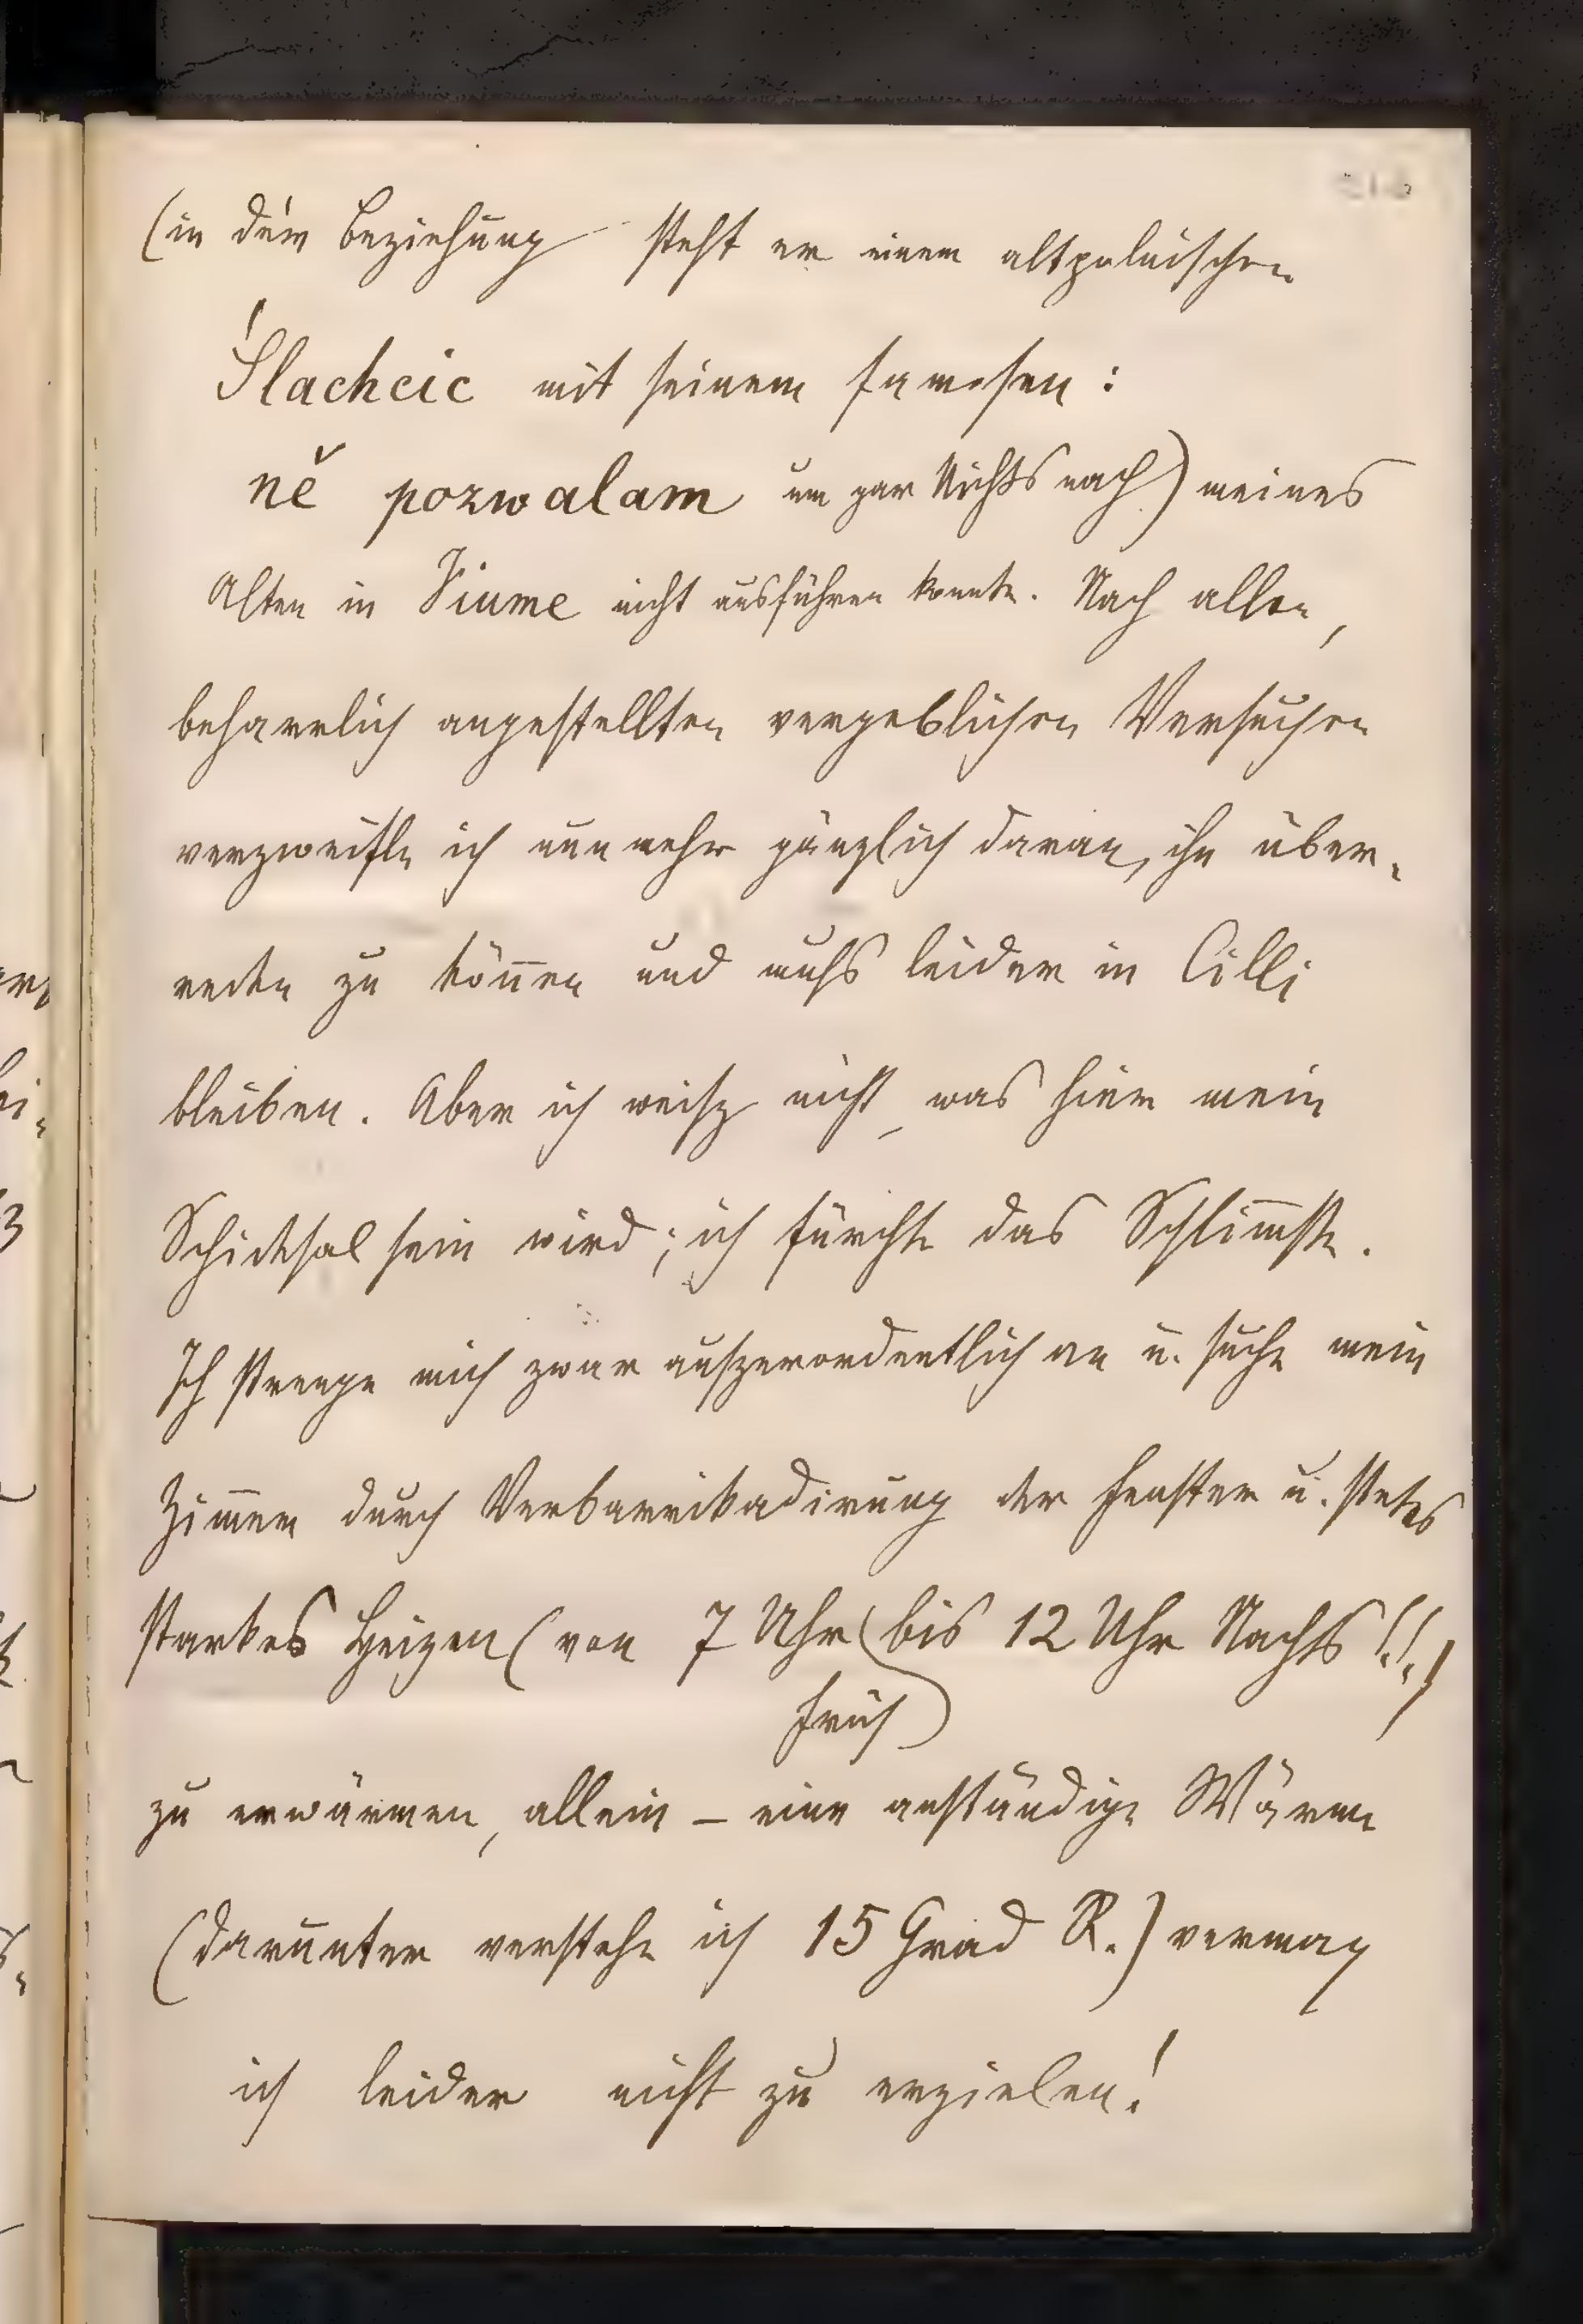 (in dem Beziehung steht er einem altpolnischen
Ślachcic mit seinem famosen:
ně pozwalam um gar Nichts nach) meines
Alten in Fiume nicht ausführen konnte. Nach allen,
beharrlich angestellten vergeblichen Versuchen
verzweifle ich nunmehr gänzlich daran, ihn über-
reden zu können und muß leider in Cilli
bleiben. Aber ich weisz nicht, was hier mein
Schicksal sein wird; ich fürchte das Schlim̅ste.
Ich strenge mich zwar auszerordentlich an u. suche mein
Zim̅er durch Verbarrikadirung der Fenster u. stetes
starkes Heizen (von 7 Uhr bis 12 Uhr Nachts!!)
früh
zu erwärmen, allein – eine anständige Wärme
(darunter verstehe ich 15 Grad R.) vermag
ich leider nicht zu erzielen!